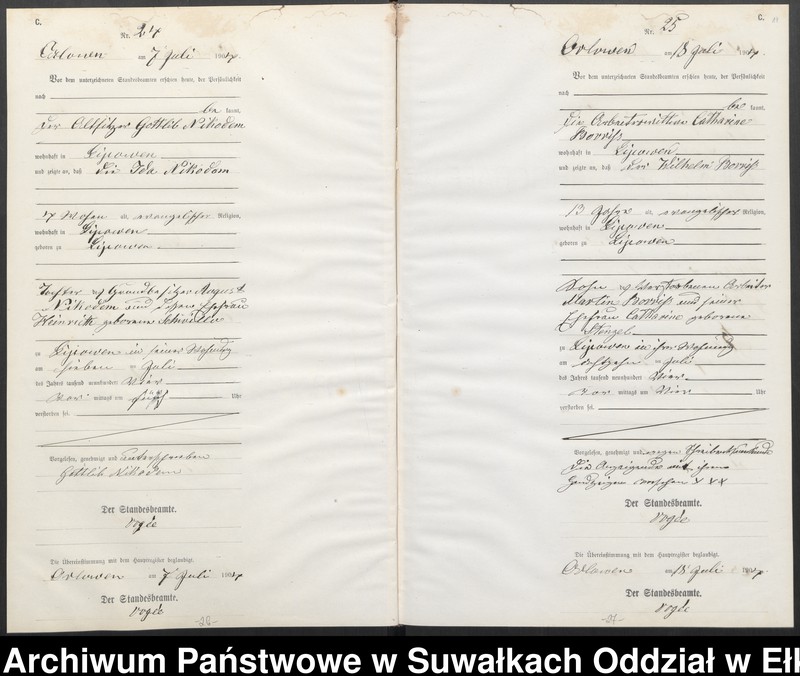 C.
Nr. 24
Orlowen am 7 Juli 1904.
Vor dem unterzeichneten Standesbeamten erschien heute, der Persönlichkeit
nach
be kannt,
der Altsitzer Gottlib Nikodem
wohnhaft in Lipowen
und zeigte an, daß die Ida Nikodem
alt, evangelischer Religion,
wohnhaft in Lipowen
geboren zu Lipowen
Tochter des Grundbesitzer August
Nikodem und dessen Ehefrau
geborene
zu Lipowen in seiner Wohnung
am sieben ten Juli
des Jahres tausend neunhundert Vier
Vor mittags um fünf Uhr
verstorben sei.
Vorgelesen, genehmigt und unterschrieben
Gottlib Nikodem
Der Standesbeamte.
Vogée
Die Übereinstimmung mit dem Hauptregister beglaubigt.
Orlowen am 7 Juli 1904.
Der Standesbeamte.
Vogée
-26-
C.
Nr. 25
Orlowen am 18 Juli 1904.
Vor dem unterzeichneten Standesbeamten erschien heute, der Persönlichkeit
nach
be kannt,
die Arbeiterwittwe Catharine
Borriß
wohnhaft in Lipowen
und zeigte an, daß der Wilhelm Borriß
13 Jahre alt, evangelischer Religion,
wohnhaft in Lipowen
geboren zu Lipowen
Sohn des verstorbenen Arbeiter
Martin Borriß und seiner
Ehefrau Catharine geborene
Stengel
zu Lipowen in ihrer Wohnung
am achtzehn ten Juli
des Jahres tausend neunhundert Vier
Vor mittags um Vier Uhr
verstorben sei.
Vorgelesen, genehmigt und wegen Schreibensunkunde
die Anzeigende mit ihrem
Handzeichen versehen X X X
Der Standesbeamte.
Vogée
Die Übereinstimmung mit dem Hauptregister beglaubigt.
Orlowen am 18 Juli 1904.
Der Standesbeamte.
Vogée
-27-
Archiwum Państwowe w Suwałkach Oddział w Ełk